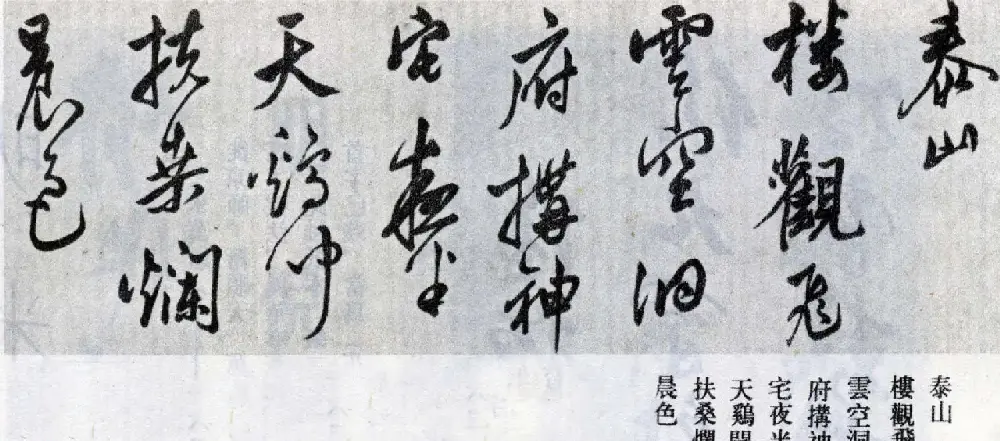 泰山
樓觀飛
雲空洞
府搆神
宅夜半
天鷄聞
扶桑爛
晨色
泰山
樓觀飛
雲空洞
府搆神
宅夜半
天鷄聞
扶桑爛
晨色